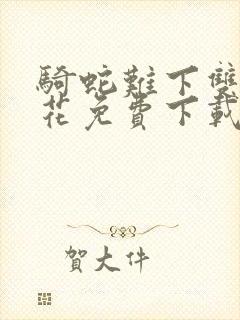 騎蛇難下雙
花免費下載
賀大件